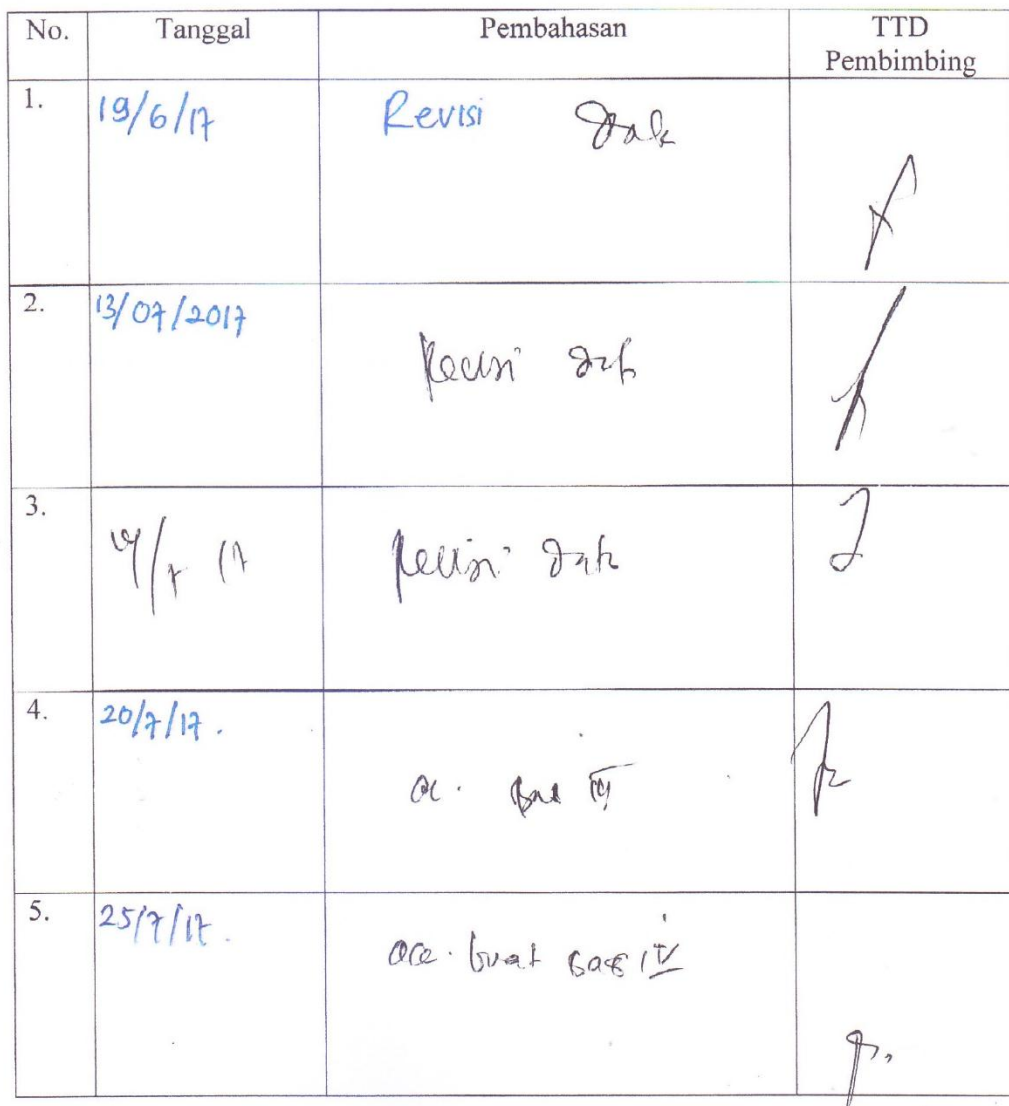 No. Tanggal Pembahasan TTD
Pembimbing
1. 19/6/17 Revisi
2. 13/07/2017 Revisi
3. Revisi
4. 20/7/17. Bab
5. 25/7/17. acc. buat Bab IV